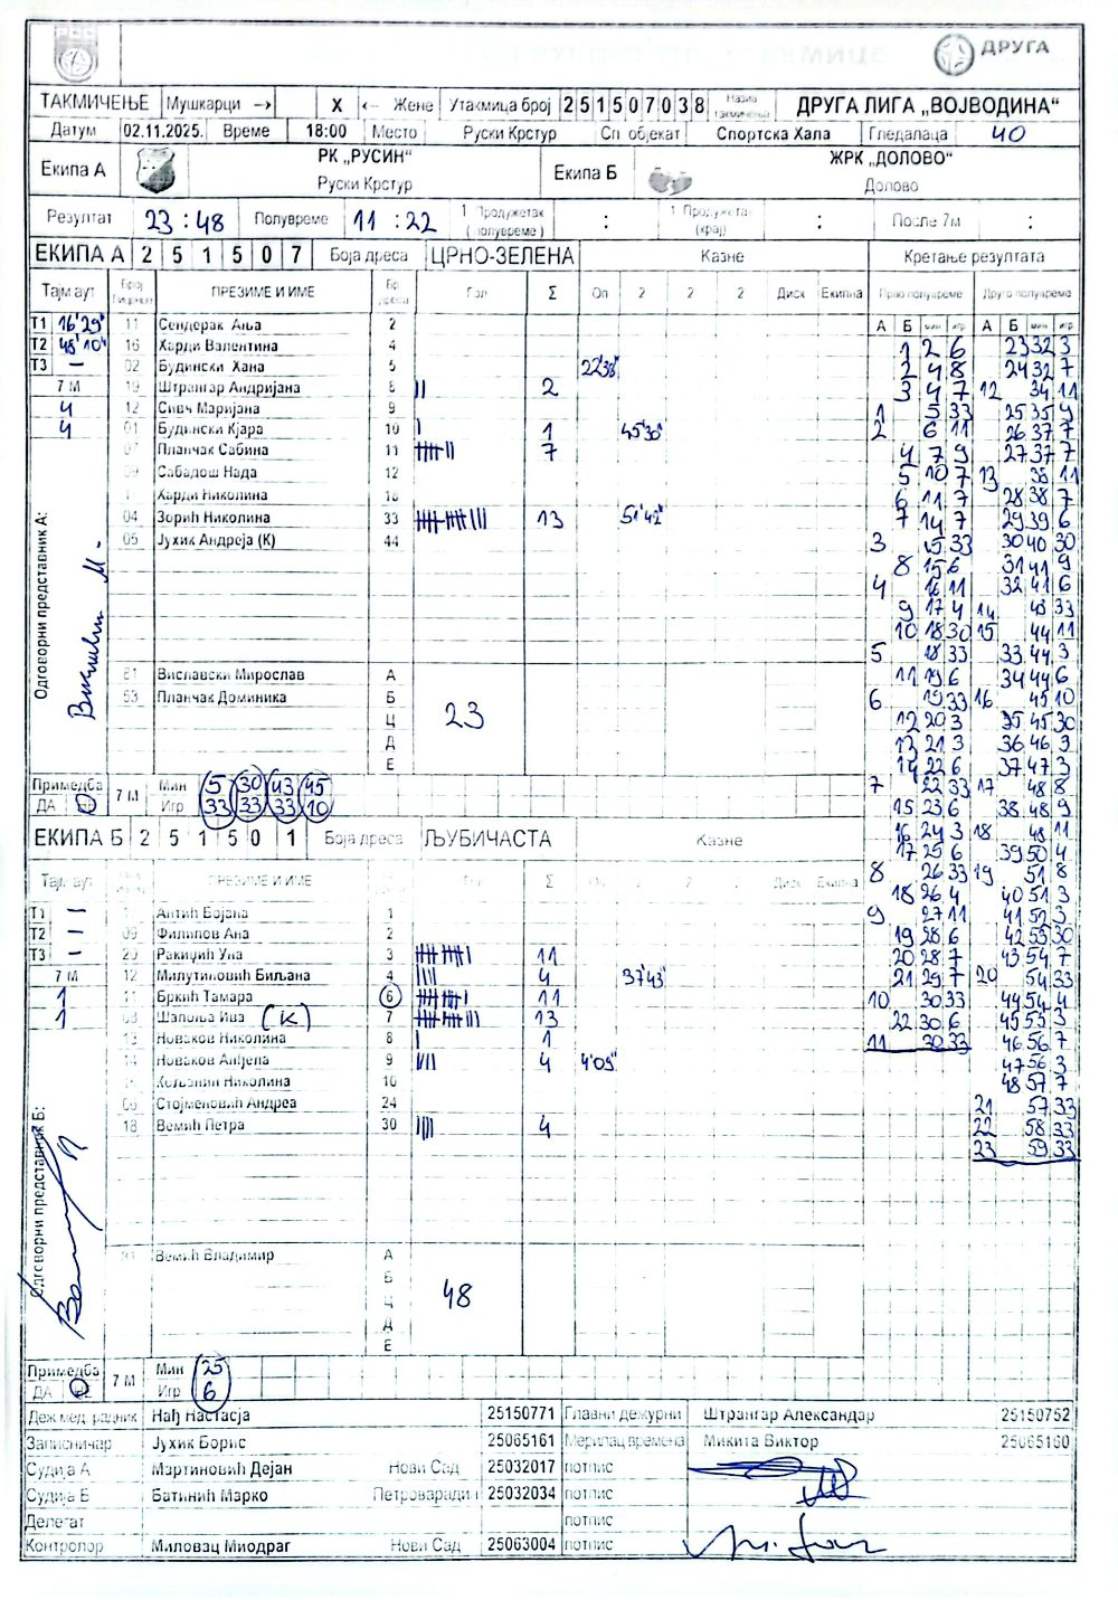 РСС
ДРУГА
ТАКМИЧЕЊЕ Мушкарци --> X <-- Жене Утакмица број 251507038 Назив такмичења ДРУГА ЛИГА „ВОЈВОДИНА“
Датум 02.11.2025. Време 18:00 Место Руски Крстур Сп. објекат Спортска Хала Гледалаца 40
Екипа А РК „РУСИН“ Руски Крстур Екипа Б ЖРК „ДОЛОВО“ Долово
Резултат 23 : 48 Полувреме 11 : 22 1 Продужетак (полувреме) : 1 Продужетак (крај) : После 7м :
ЕКИПА А 2 5 1 5 0 7 Боја дреса ЦРНО-ЗЕЛЕНА Казне Кретање резултата
Тајм аут ПРЕЗИМЕ И ИМЕ Бр. дреса Гол Σ Оп 2 2 2 Диск Екипна Прво полувреме Друго полувреме
А Б мин игр А Б мин игр
Т1 16'29" 11 Сендерак Ања 2
Т2 48'10" 16 Харди Валентина 4
Т3 – 02 Будински Хана 5 22'38"
7 М 19 Штрангар Андријана 8 || 2
4 12 Сивч Маријана 9
4 01 Будински Кјара 10 | 1 45'30"
07 Планчак Сабина 11 7
Сабадош Нада 12
Харди Николина 18
04 Зорић Николина 33 13 51'42"
05 Јухик Андреја (К) 44
Одговорни представник А:
81 Виславски Мирослав А
53 Планчак Доминика Б
23
Ц
Д
Е
Примедба ДА НЕ 7 М Мин 5 30 43 45
Игр 33 33 33 10
1 2 6
2 4 8
3 4 7
1 5 33
2 6 11
4 7 9
5 10 7
6 11 7
7 14 7
3 15 33
8 15 6
4 16 11
9 17 4
10 18 30
5 18 33
11 19 6
6 19 33
12 20 3
13 21 3
14 22 6
7 22 33
15 23 6
16 24 3
17 25 6
8 26 33
18 26 4
9 27 11
19 28 6
20 28 7
21 29 7
10 30 33
22 30 6
11 30 33
23 32 3
24 32 7
12 34 11
25 35 9
26 37 7
27 37 7
13 38 11
28 38 7
29 39 6
30 40 30
31 41 9
32 41 6
14 43 33
15 44 11
33 44 3
34 44 6
16 45 10
35 45 30
36 46 3
37 47 3
17 48 8
38 48 9
18 48 11
39 50 4
19 51 8
40 51 3
41 52 3
42 53 30
43 54 7
20 54 33
44 54 4
45 55 3
46 56 7
47 56 3
48 57 7
21 57 33
22 58 33
23 59 33
ЕКИПА Б 2 5 1 5 0 1 Боја дреса ЉУБИЧАСТА Казне
Тајм аут ПРЕЗИМЕ И ИМЕ Гол Σ Оп 2 2 2 Диск Екипна
Т1 – Антић Бојана 1
Т2 – 09 Филипов Ана 2
Т3 – 20 Ракиџић Уна 3 11
7 М 12 Милутиновић Биљана 4 |||| 4 37'43"
1 11 Бркић Тамара 6 11
1 Шапоња Ива (К) 7 13
13 Новаков Николина 8 | 1
14 Новаков Анђела 9 |||| 4 4'05"
Николина 10
Стојменовић Андреа 24
18 Вемић Петра 30 |||| 4
Одговорни представник Б:
Вемић Владимир А
Б
48
Ц
Д
Е
Примедба ДА НЕ 7 М Мин 25
Игр 6
Деж мед. радник Нађ Настасја 25150771 Главни дежурни Штрангар Александар 25150752
Записничар Јухик Борис 25065161 Мерилац времена Микита Виктор 25065160
Судија А Мартиновић Дејан Нови Сад 25032017 потпис
Судија Б Батинић Марко Петроварадин 25032034 потпис
Делегат потпис
Контролор Миловац Миодраг Нови Сад 25063004 потпис